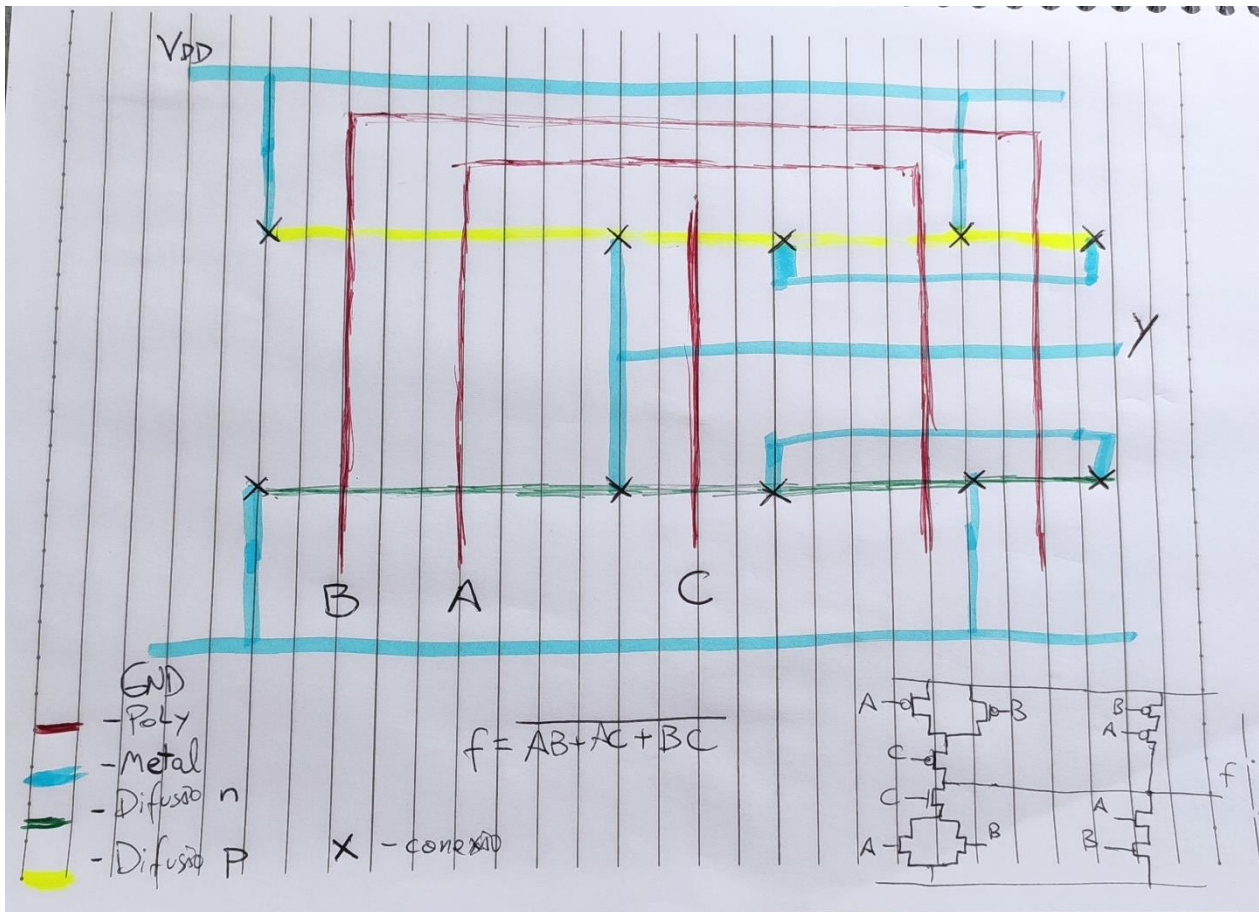 VDD
Y
B A C
GND
- Poly
- Metal
- Difusão n
- Difusão p
X - conexão
f = \overline{AB + AC + BC}
A B B
A
C
C A
A B B
f